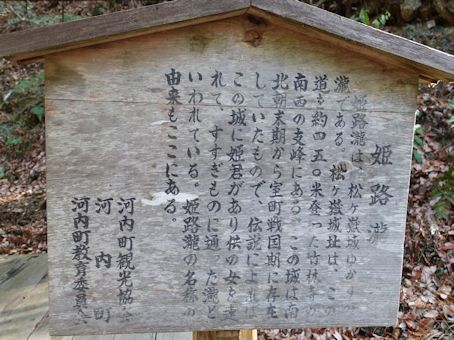 姫路瀧
姫路瀧は、松ヶ嶽城ゆかりの
瀧である。松ヶ嶽城址は、この
道を約四五〇米登った竹林寺の
南西の支峰にある。この城は南
北朝末期から室町戦国期に存在
していたもので、伝説によれば
この城に姫君があり供の女を連
れて、すすぎものに通った瀧と
いわれている。姫路瀧の名称の
由来もここにある。
河内町観光協会
河内町
河内町教育委員会